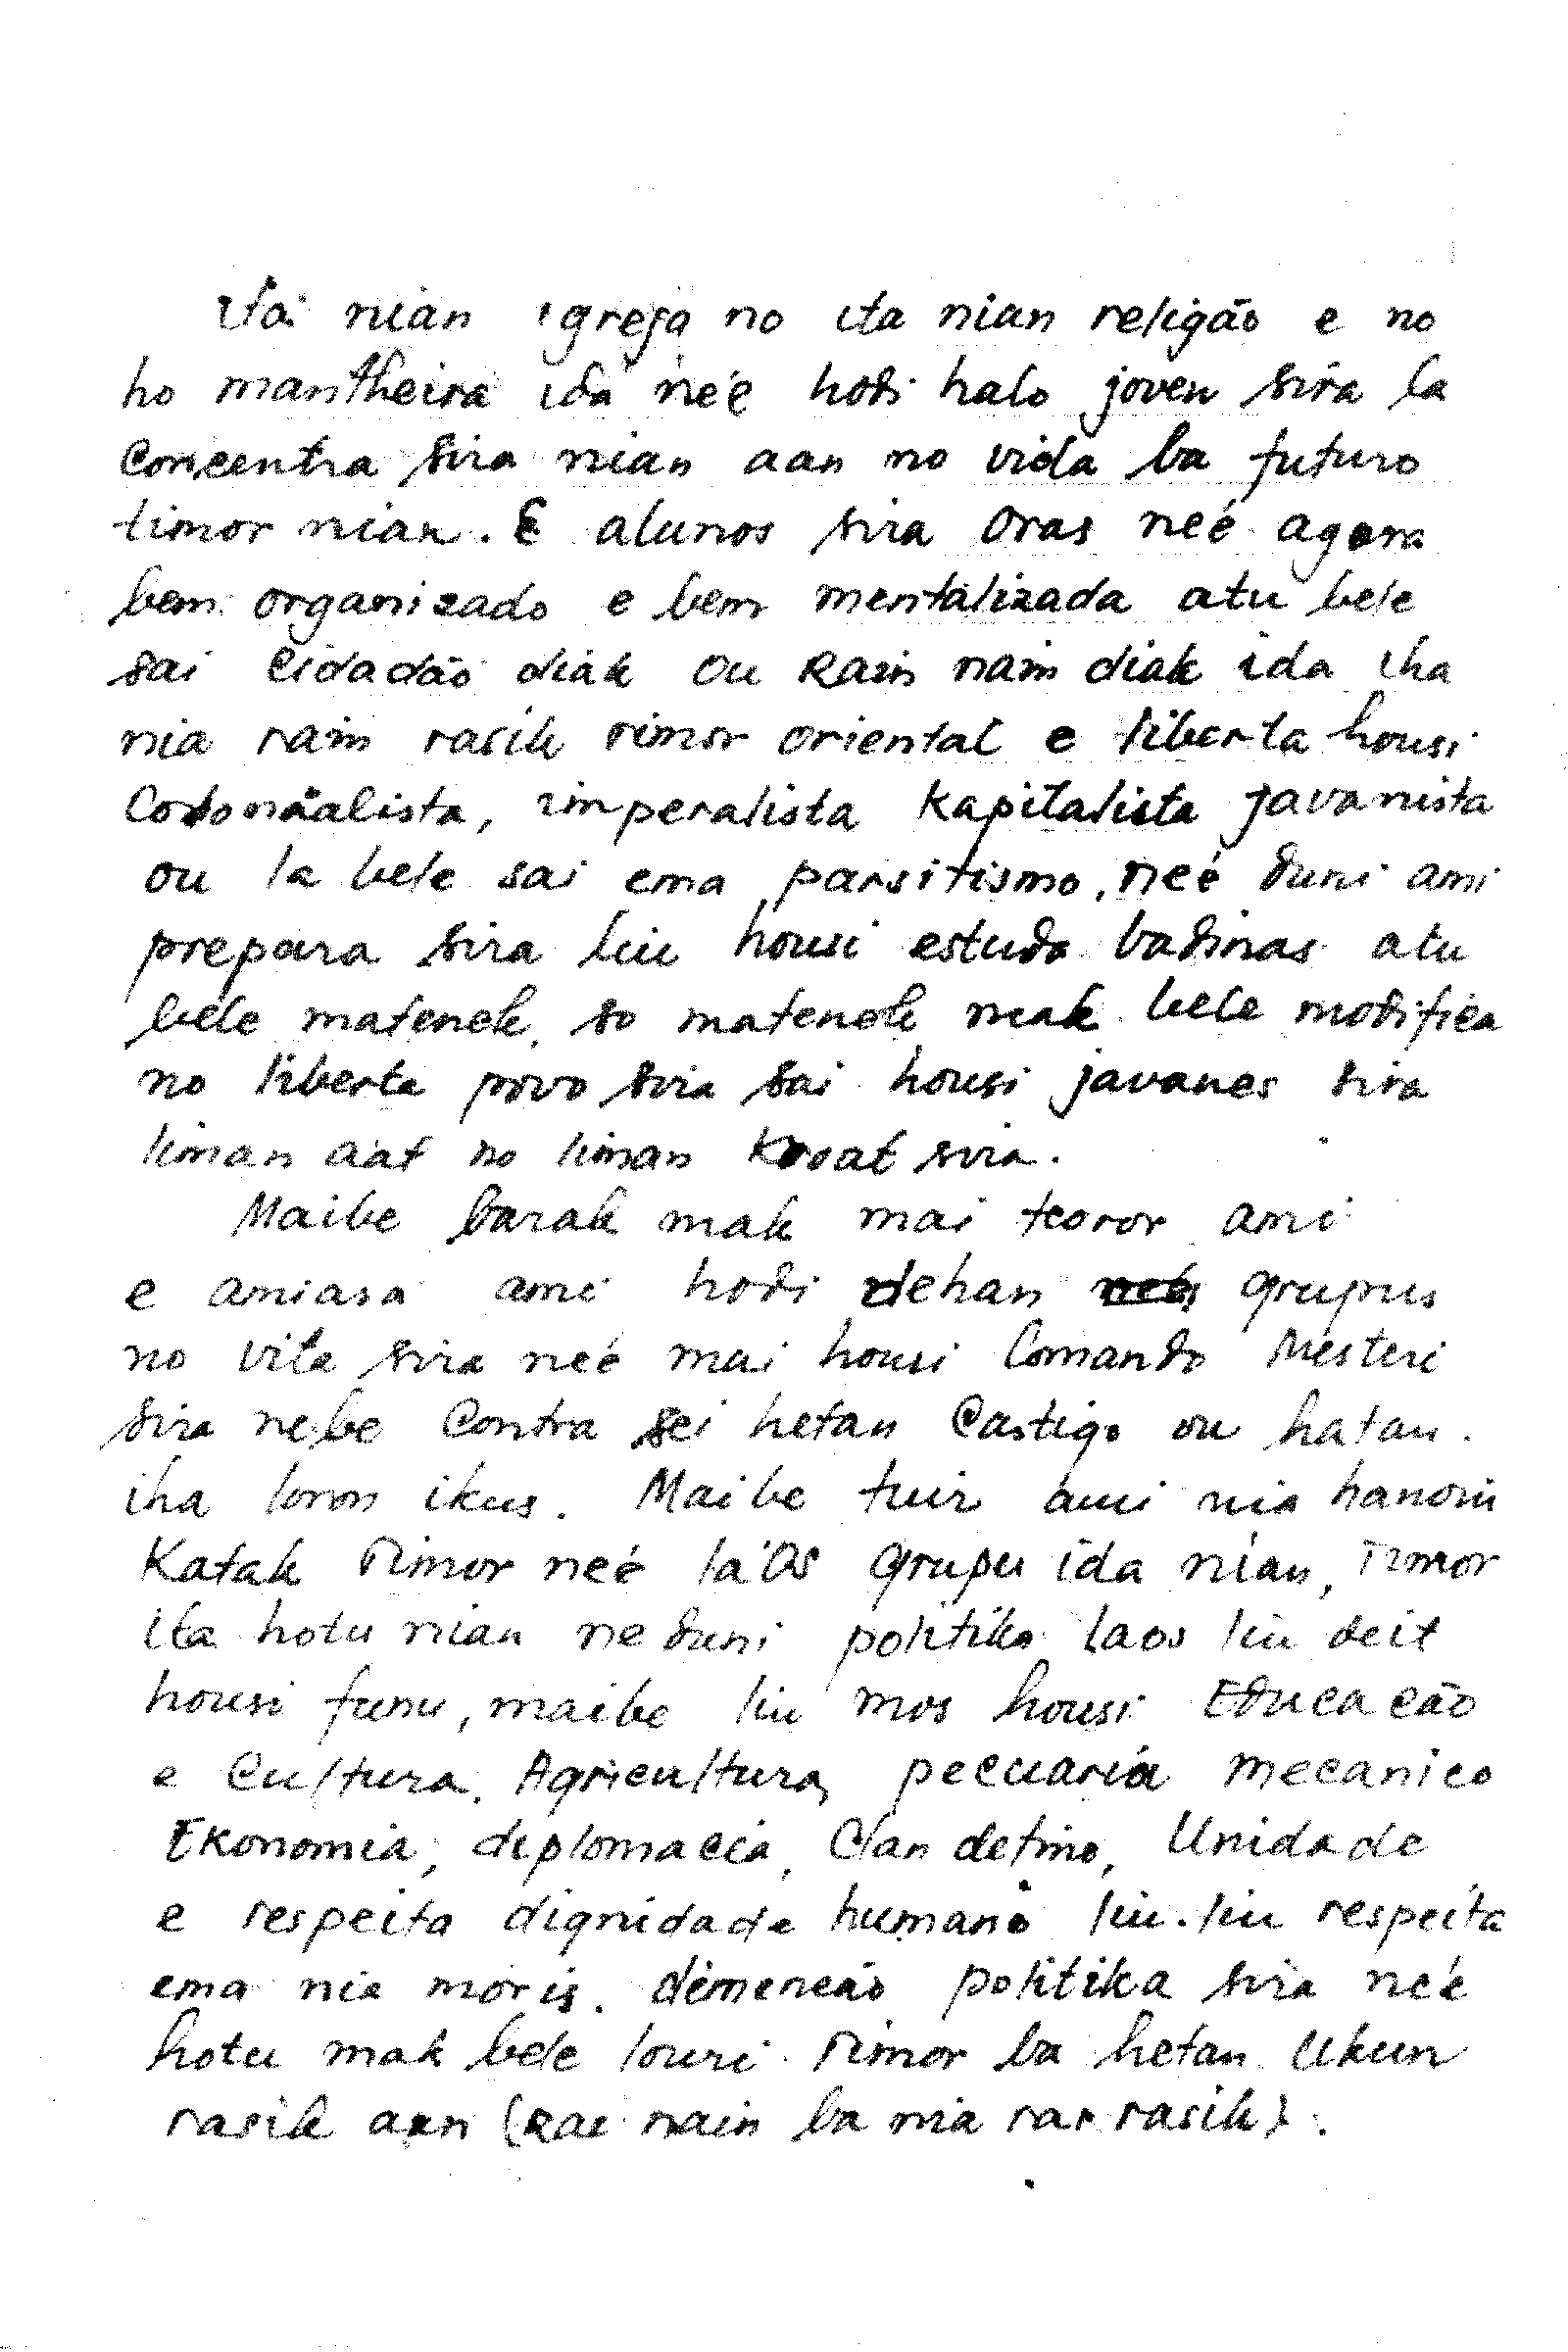 ita nian igreja no ita nian religão e no
ho mantheira ida neé hodi halo joven sira la
concentra sira nian aan no vida ba futuro
timor nian. E alunos sira oras neé agora
bem organizado e bem mentalizada atu bele
sai cidadão diak ou Rain nain diak ida iha
nia rain rasik Timor oriental e liberta housi
imperalista Kapitalista javanista
ou la bele sai ema parsitismo, neé duni ami
prepara sira liu housi estuda badinas atu
bele matenek, so matenek mak bele modifica
no liberta povo sira sai housi javanes sira
liman aat no liman kroat sira.
Maibe barak mak mai teoror ami
e amiasa ami hodi dehan grupus
no vita sira neé mai housi Comando Mesteri
sira nebe contra sei hetan Castigo ou hatan.
iha loron ikus. Maibe tuir ami nia hanoin
Katak Timor neé la'os grupu ida nian, Timor
ita hotu nian ne duni politika laos liu deit
housi funu, maibe liu mos housi Educacão
e Cultura, Agricultura, pecuaria mecanico
Ekonomia, diplomacia, Clandetino, Unidade
e respeita dignidade humano liu-liu respeita
ema nia moris. dimencão politika sira neé
hotu mak bele louri Timor ba hetan Ukun
rasik aan (Rai nain ba nia rai rasik).